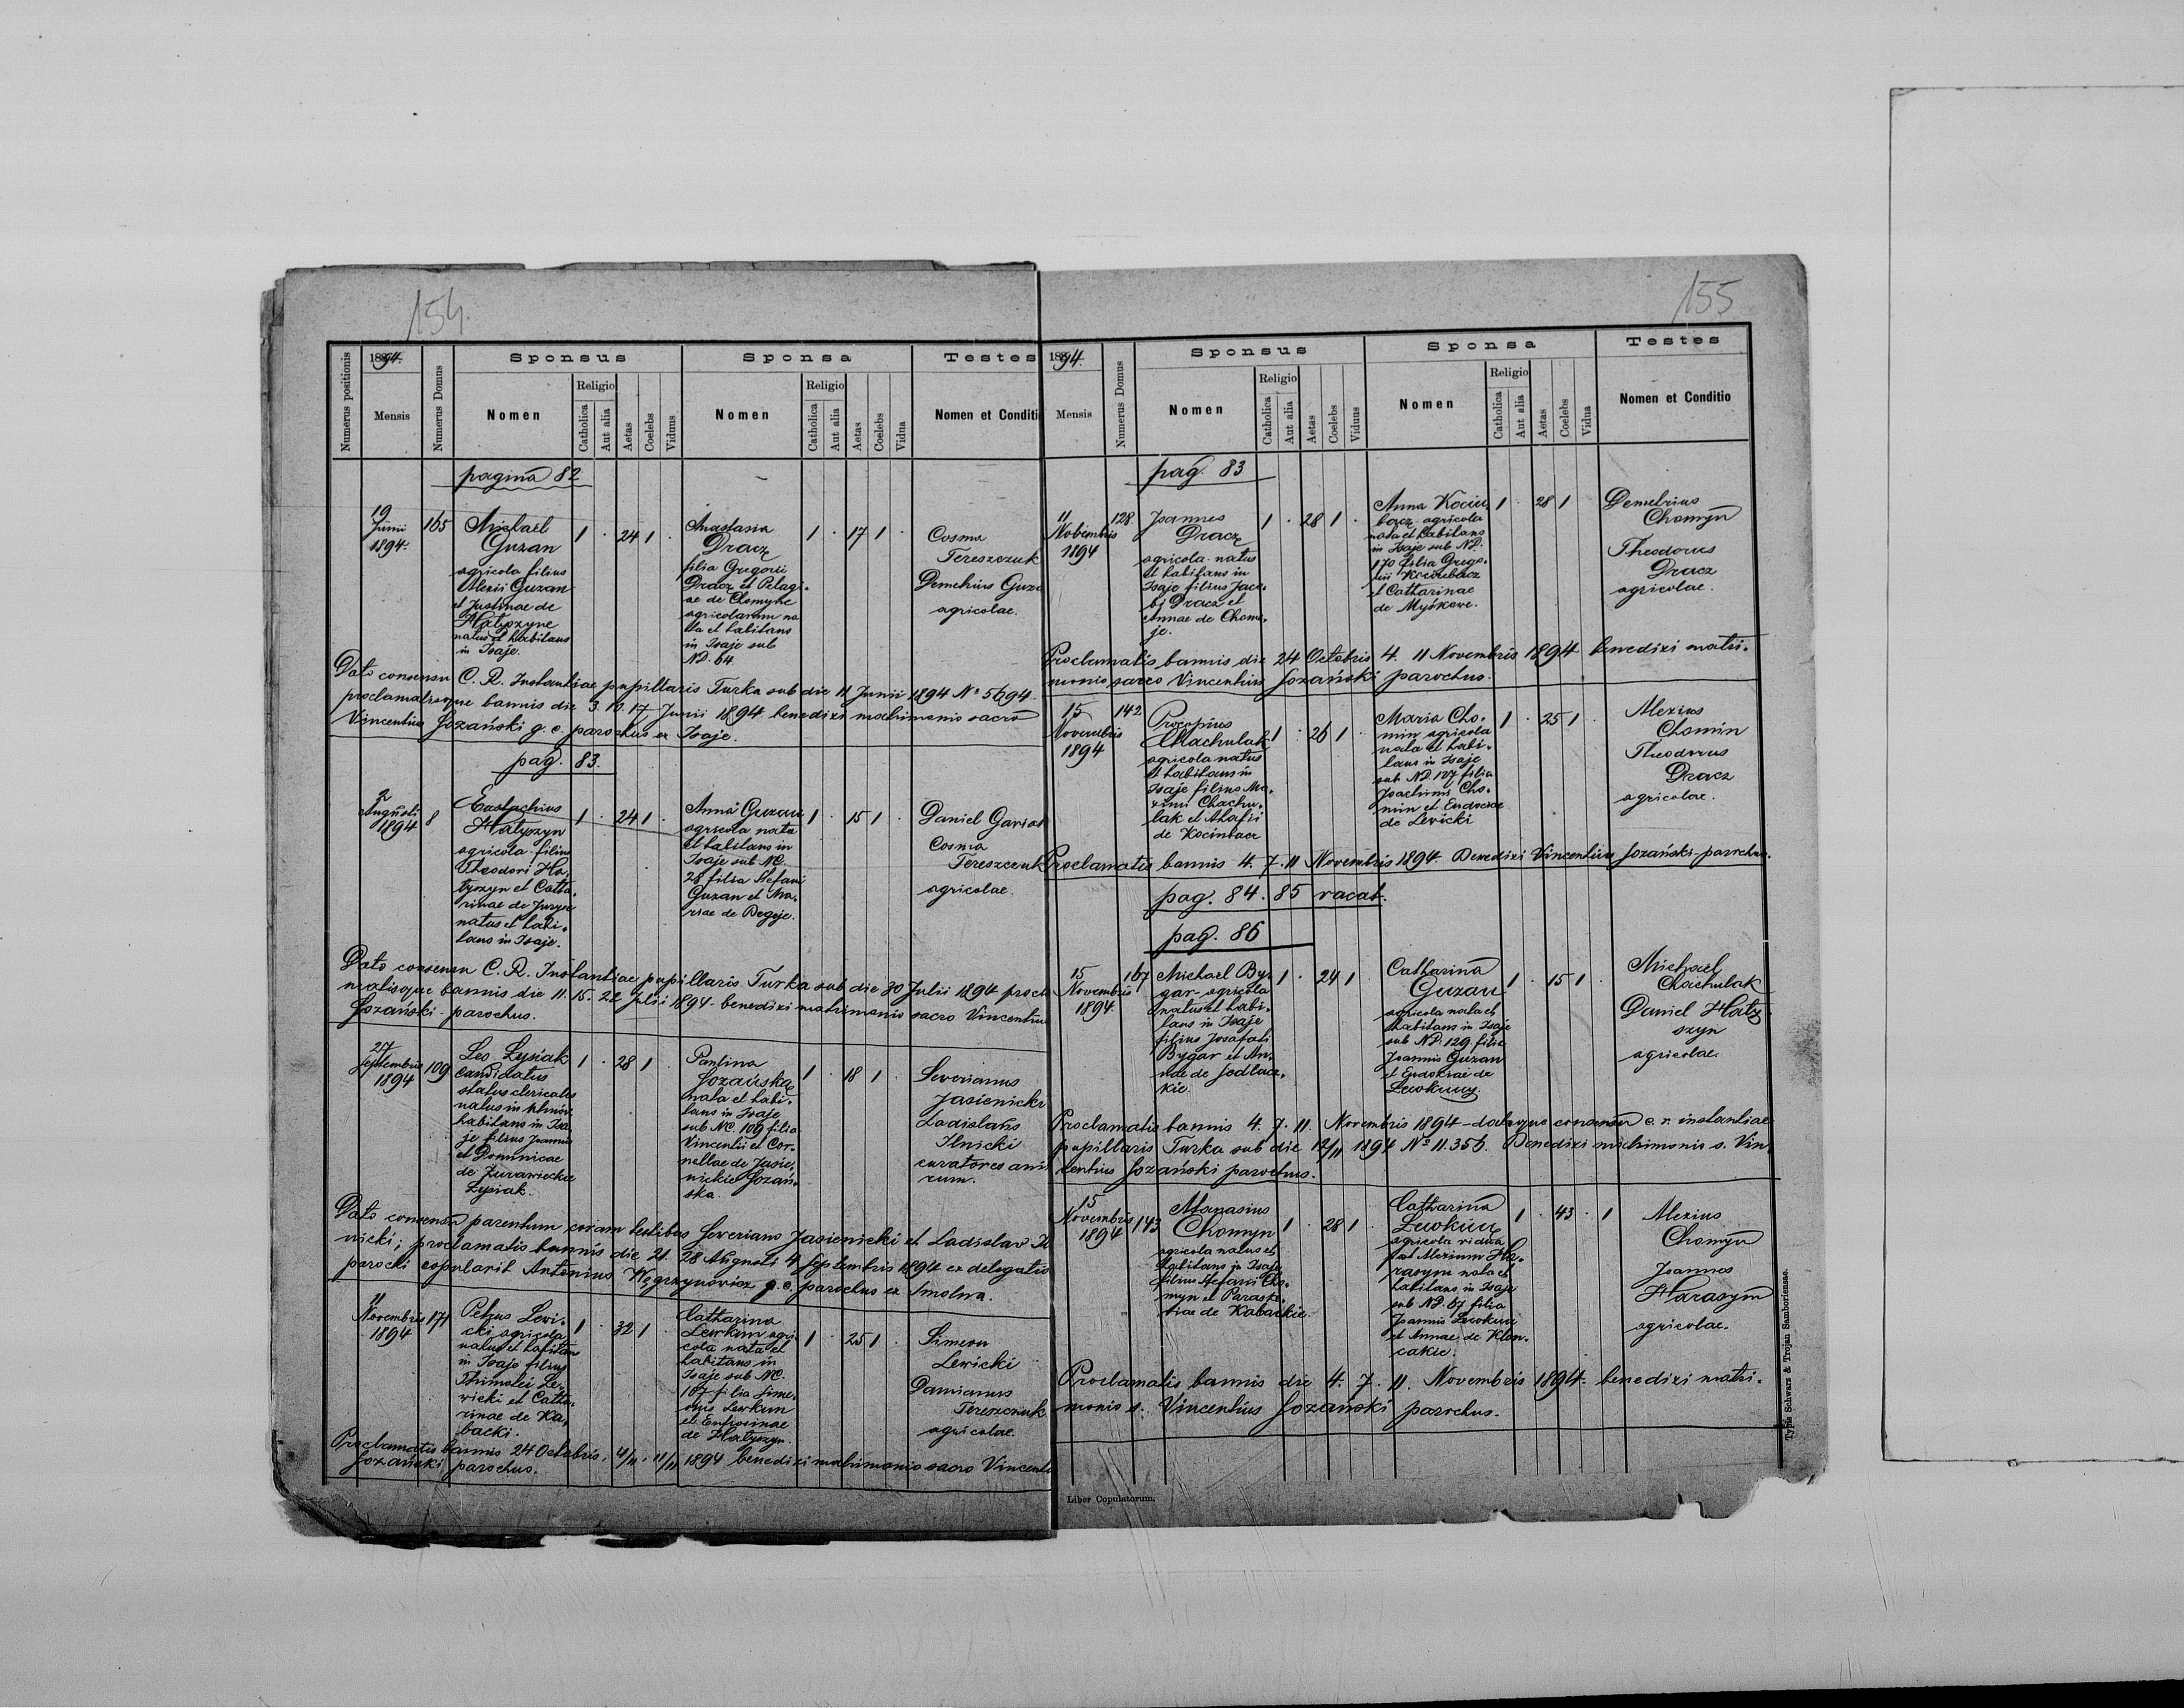 154.
Numerus positionis
1894.
Mensis
Numerus Domus
Sponsus
Nomen
Religio
Catholica
Aut alia
Aetas
Coelebs
Viduus
Sponsa
Nomen
Religio
Catholica
Aut alia
Aetas
Coelebs
Vidua
Testes
Nomen et Conditi
pagina 82
19
Junii
1894.
165
Michael
Guzan
agricola filius
Alexii Guzan
et Justinae de
Hatyszyne
natus et habitans
in Isaje.
1 . 24 1 .
Anastasia
Dracz
filia Gregorii
Dracz et Pelagi-
ae de Chomyne
agricolarum na
ta et habitans
in Isaje sub
ND. 64.
1 . 17 1 .
Cosma
Tereszczuk
Demetrius Guza
agricolae.
Dato consensu C. R. Instantiae pupillaris Turka sub die 11 Junii 1894 No 5694.
proclamatisque bannis die 3. 10. 17 Junii 1894. benedixi matrimonio sacro
Vincentius Sozański g. c. parochus ex Isaje.
pag. 83.
2
Augusti
1894
8
Eustachius
Hatyszyn
agricola filius
Theodori Ha-
tyszyn et Catha-
rinae de
natus et habi-
tans in Isaje.
1 . 24 1 .
Anna Guzan
agricola nata
et habitans in
Isaje sub NC.
28 filia Stefani
Guzan et Ma-
riae de Begeje.
1 . 15 1 .
Daniel
Cosma
Tereszczuk
agricolae.
Dato consensu C. R. Instantiae pupillaris Turka sub die 30 Julii 1894 procla
matisque bannis die 11. 15. 22 Julii 1894. benedixi matrimonio sacro Vincentius
Sozański - parochus.
27
Septembris
1894
109
Leo Lysiak
candidatus
status clericalis
natus in
habitans in Isa-
je filius Joannis
et Dominicae
de Żurawieckie
Lysiak.
1 . 28 1 .
Paulina
Sozańska
nata et habi-
tans in Isaje
sub NC. 109 filia
Vincentii et Cor-
nellae de Jasie-
nickie Sozań-
ska.
1 . 18 1 .
Severianus
Jasienicki
Ladislaus
Ilnicki
curatores ani
rum.
Dato consensu parentum coram testibus Severiano Jasienicki et Ladislao Il
nicki; proclamatis bannis die 21. 28 Augusti 4 Septembris 1894 ex delegatio
parochi copulavit Antonius Węgrzynowicz g. c. parochus ex Smolna.
11
Novembris
1894
171
Petrus Lewi-
cki agricola
natus et habitans
in Isaje filius
Thimotei Le-
wicki et Catha-
rinae de Ka-
backi.
1 . 32 1 .
Catharina
Lewkun agri-
cola nata et
habitans in
Isaje sub NC.
167 filia Sime-
onis Lewkun
et Eufrosinae
de Hatyszyn.
1 . 25 1 .
Simeon
Lewicki
Damianus
Tereszczuk
agricolae.
Proclamatis bannis 24 Octobris, 4/11. 11/11 1894 benedixi matrimonio sacro Vincenti
Sozański parochus.
155
1894.
Mensis
Numerus Domus
Sponsus
Nomen
Religio
Catholica
Aut alia
Aetas
Coelebs
Viduus
Sponsa
Nomen
Religio
Catholica
Aut alia
Aetas
Coelebs
Vidua
Testes
Nomen et Conditio
pag. 83
11
Nobembris
1894
128.
Joannes
Dracz
agricola natus
et habitans in
Isaje filius Jaco-
bi Dracz et
Annae de Chome-
je.
1 . 28 1 .
Anna Kociu-
bacz agricola
nata et habitans
in Isaje sub ND.
170 filia Grego-
rii Kociubacz
et Catharinae
de Myśkowe.
1 . 28 1
Demetrius
Chomyn
Theodorus
Dracz
agricolae.
Proclamatis bannis die 24 Octobris 4. 11 Novembris 1894 benedixi matri-
monio sacro Vincentius Sozański parochus.
15
Novembris
1894
142
Procopius
Chachulak
agricola natus
et habitans in
Isaje filius Ma-
ximi Chachu-
lak et Agafii
de Kociubacz
1 . 26 1 .
Maria Cho-
min agricola
nata et habi-
tans in Isaje
sub ND. 127 filia
Joachimi Cho-
min et Eudociae
de Lewicki
1 . 25 1 .
Alexius
Chomin
Theodorus
Dracz
agricolae.
Proclamatis bannis 4. 7. 11 Novembris 1894. Benedixi Vincentius Sozański - parochus.
pag. 84. 85 vacat.
pag. 86
15
Novembris
1894.
167
Michael By-
gar - agricola
natus et habi-
tans in Isaje
filius Josafati
Bygar et An-
nae de Sodlac-
kie.
1 . 24 1 .
Catharina
Guzan
agricola nata et
habitans in Isaje
sub ND. 129. filia
Joannis Guzan
et Eudokiae de
Lewkuny.
1 . 15 1 .
Michael
Chachulak
Daniel Haty-
szyn
agricolae.
Proclamatis bannis 4. 7. 11. Novembris 1894 - datoque consensu c. r. instantiae
pupillaris Turka sub die 12/11 1894 No 11.356. Benedixi matrimonio s. Vin-
centius Sozański parochus.
15
Novembris
1894
143
Atanasius
Chomyn
agricola natus et
habitans in Isaje
filius Stefani Cho-
myn et Paraske-
viae de Kabackie.
1 . 28 1 .
Catharina
Lewkun
agricola vidua
post Alexium Ha-
rasym nata et
habitans in Isaje
sub ND. 67 filia
Joannis Lewkun
et Annae de Klem-
cakie.
1 . 43 . 1
Alexius
Chomyn
Joannes
Harasym
agricolae.
Proclamatis bannis die 4. 7. 11. Novembris 1894. benedixi matri-
monio s. Vincentius Sozański parochus.
Liber Copulatorum.
Typis Schwarz & Trojan Samboriensae.